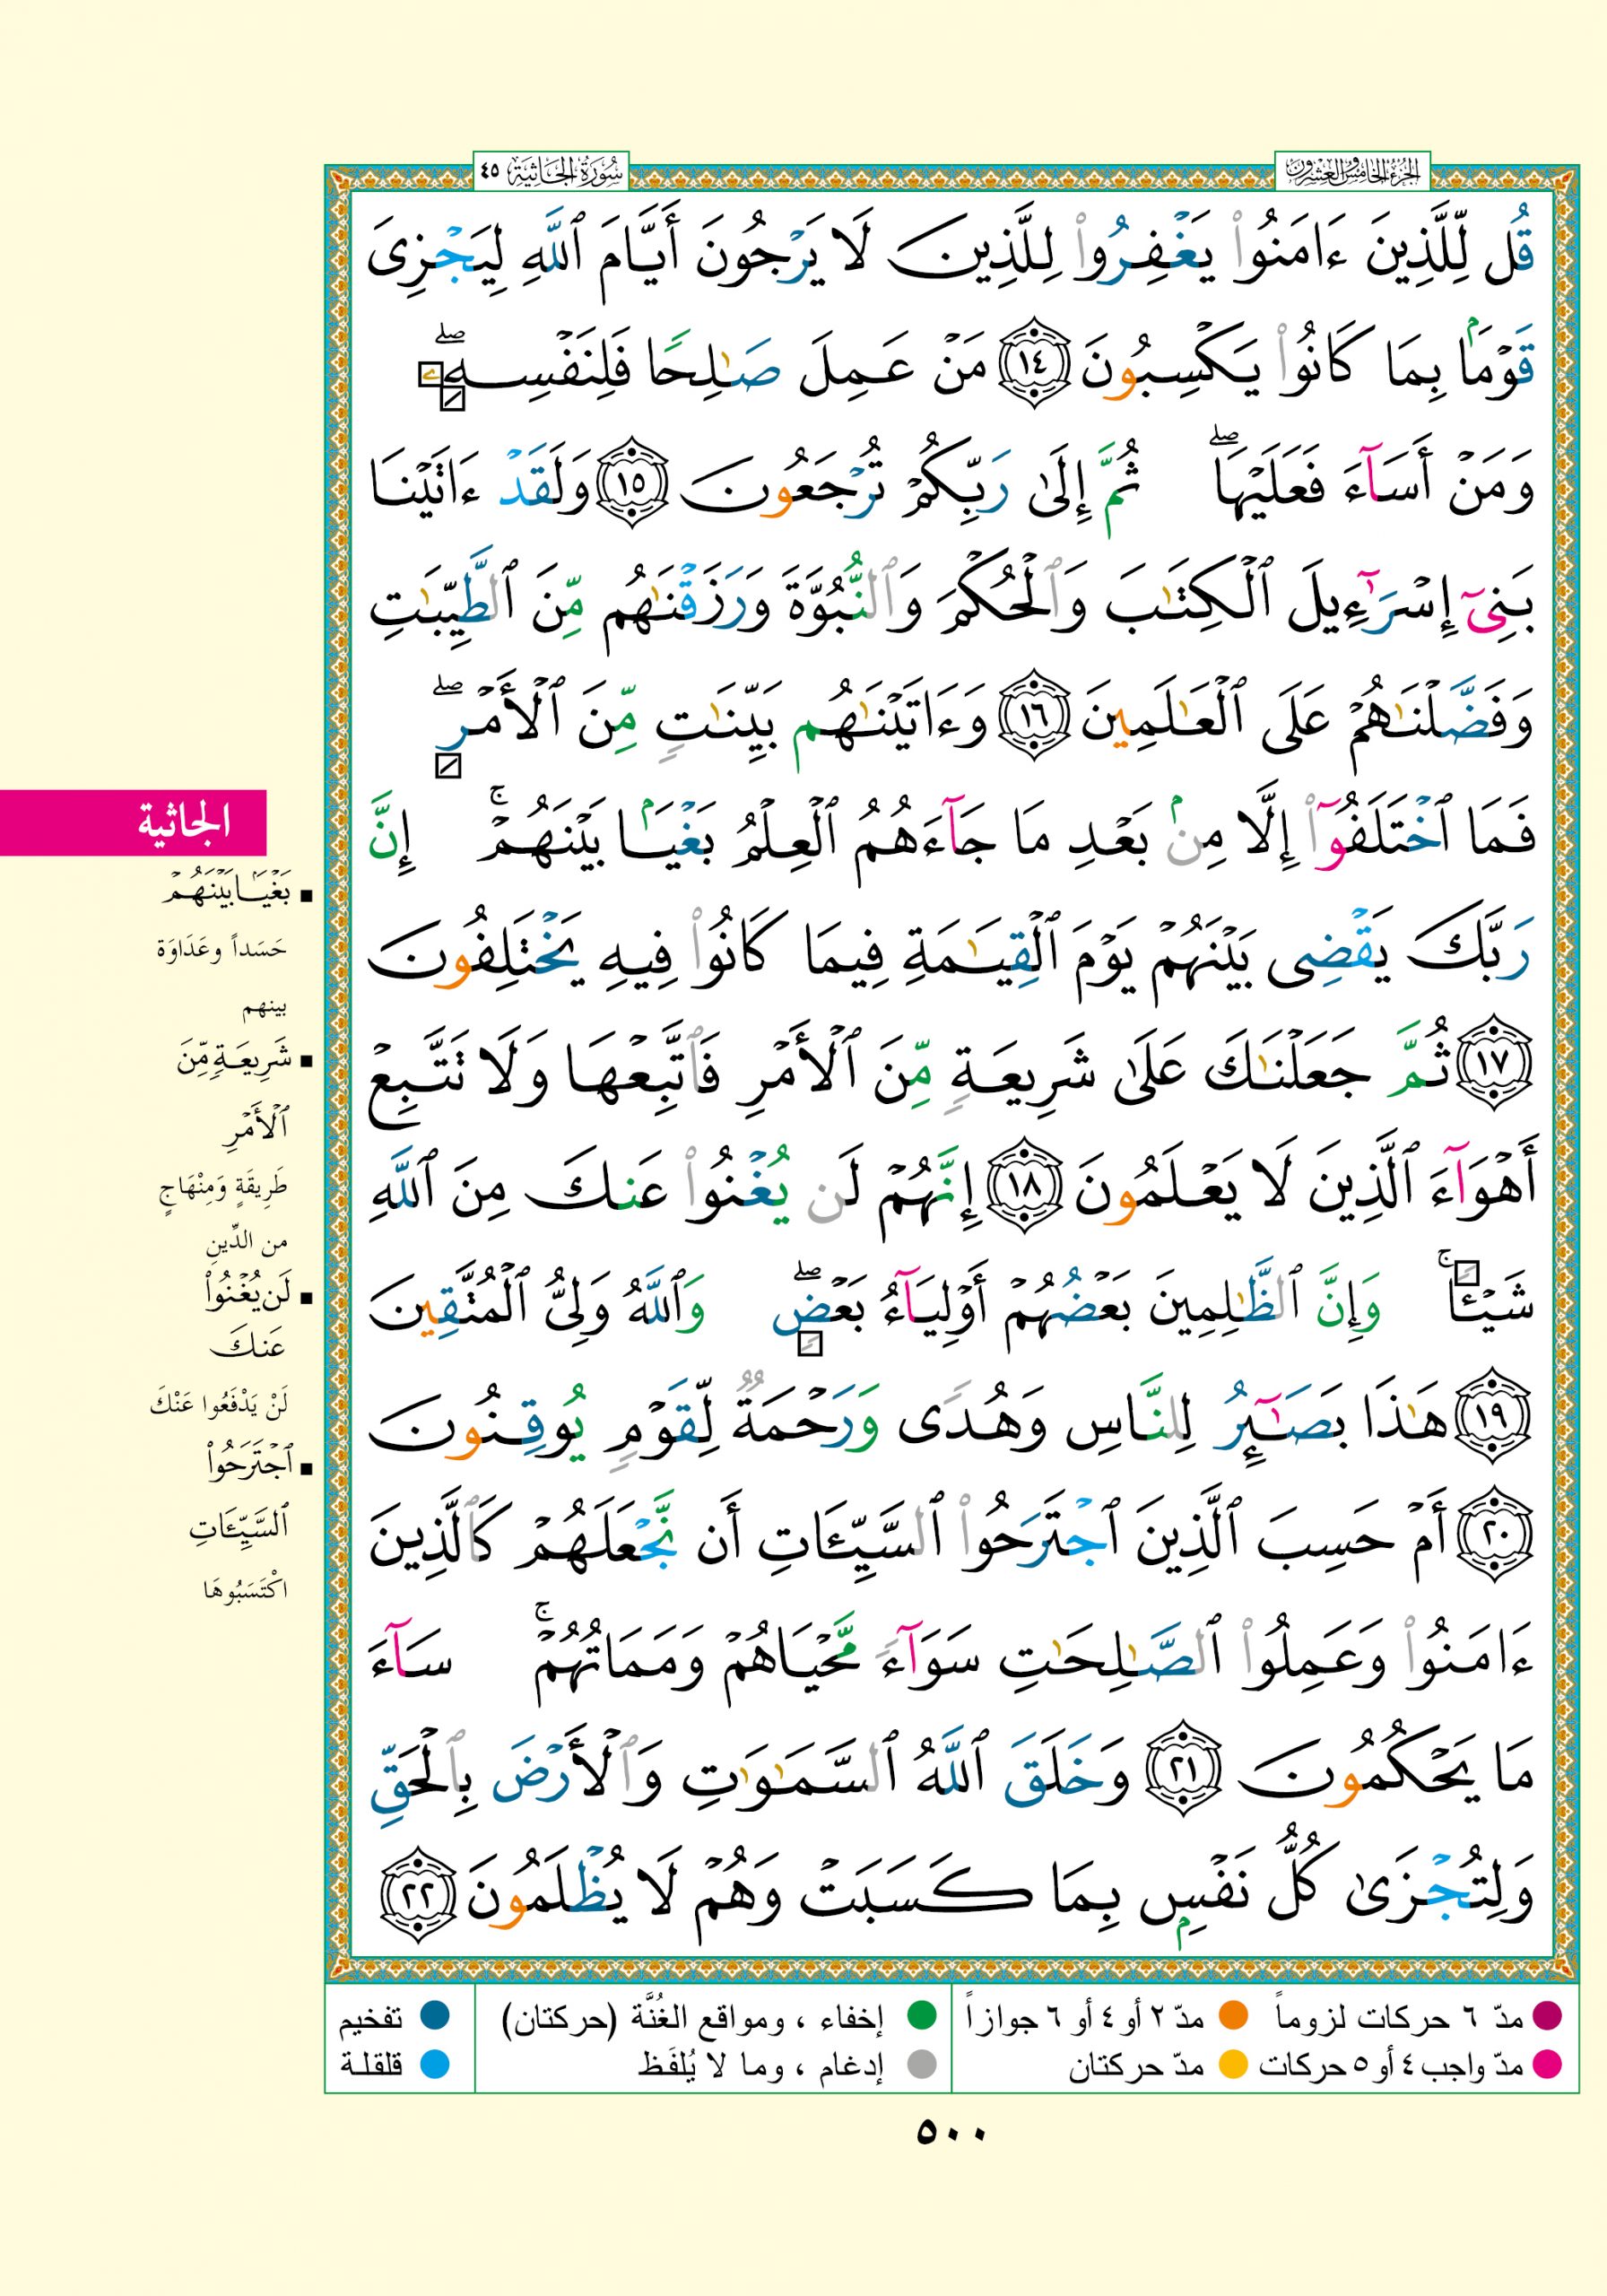 الجزء الخامس والعشرون
سُورَةُ الجَاثِيَة ٤٥
قُل لِّلَّذِينَ ءَامَنُوا۟ يَغْفِرُوا۟ لِلَّذِينَ لَا يَرْجُونَ أَيَّامَ ٱللَّهِ لِيَجْزِىَ
قَوْمًۢا بِمَا كَانُوا۟ يَكْسِبُونَ ١٤ مَنْ عَمِلَ صَـٰلِحًا فَلِنَفْسِهِۦ ۖ
وَمَنْ أَسَآءَ فَعَلَيْهَا ۖ ثُمَّ إِلَىٰ رَبِّكُمْ تُرْجَعُونَ ١٥ وَلَقَدْ ءَاتَيْنَا
بَنِىٓ إِسْرَٰٓءِيلَ ٱلْكِتَـٰبَ وَٱلْحُكْمَ وَٱلنُّبُوَّةَ وَرَزَقْنَـٰهُم مِّنَ ٱلطَّيِّبَـٰتِ
وَفَضَّلْنَـٰهُمْ عَلَى ٱلْعَـٰلَمِينَ ١٦ وَءَاتَيْنَـٰهُم بَيِّنَـٰتٍ مِّنَ ٱلْأَمْرِ ۖ
فَمَا ٱخْتَلَفُوٓا۟ إِلَّا مِنۢ بَعْدِ مَا جَآءَهُمُ ٱلْعِلْمُ بَغْيًۢا بَيْنَهُمْ ۚ إِنَّ
رَبَّكَ يَقْضِى بَيْنَهُمْ يَوْمَ ٱلْقِيَـٰمَةِ فِيمَا كَانُوا۟ فِيهِ يَخْتَلِفُونَ
١٧ ثُمَّ جَعَلْنَـٰكَ عَلَىٰ شَرِيعَةٍ مِّنَ ٱلْأَمْرِ فَٱتَّبِعْهَا وَلَا تَتَّبِعْ
أَهْوَآءَ ٱلَّذِينَ لَا يَعْلَمُونَ ١٨ إِنَّهُمْ لَن يُغْنُوا۟ عَنكَ مِنَ ٱللَّهِ
شَيْـًٔا ۚ وَإِنَّ ٱلظَّـٰلِمِينَ بَعْضُهُمْ أَوْلِيَآءُ بَعْضٍ ۖ وَٱللَّهُ وَلِىُّ ٱلْمُتَّقِينَ
١٩ هَـٰذَا بَصَـٰٓئِرُ لِلنَّاسِ وَهُدًى وَرَحْمَةٌ لِّقَوْمٍ يُوقِنُونَ
٢٠ أَمْ حَسِبَ ٱلَّذِينَ ٱجْتَرَحُوا۟ ٱلسَّيِّـَٔاتِ أَن نَّجْعَلَهُمْ كَٱلَّذِينَ
ءَامَنُوا۟ وَعَمِلُوا۟ ٱلصَّـٰلِحَـٰتِ سَوَآءً مَّحْيَاهُمْ وَمَمَاتُهُمْ ۚ سَآءَ
مَا يَحْكُمُونَ ٢١ وَخَلَقَ ٱللَّهُ ٱلسَّمَـٰوَٰتِ وَٱلْأَرْضَ بِٱلْحَقِّ
وَلِتُجْزَىٰ كُلُّ نَفْسٍۭ بِمَا كَسَبَتْ وَهُمْ لَا يُظْلَمُونَ ٢٢
الجاثية
■ بَغْيًۢا بَيْنَهُمْ
حَسَداً وعَدَاوَة
بينهم
■ شَرِيعَةٍ مِّنَ
ٱلْأَمْرِ
طَرِيقَةٍ وَمِنْهَاجٍ
من الدِّينِ
■ لَن يُغْنُوا۟
عَنكَ
لَنْ يَدْفَعُوا عَنْكَ
■ ٱجْتَرَحُوا۟
ٱلسَّيِّـَٔاتِ
اكْتَسَبُوهَا
مدّ ٦ حركات لزوماً مدّ ٢ أو ٤ أو ٦ جوازاً إخفاء ، ومواقع الغُنَّة (حركتان) تفخيم
مدّ واجب ٤ أو ٥ حركات مدّ حركتان إدغام ، وما لا يُلفَظ قلقلة
٥٠٠